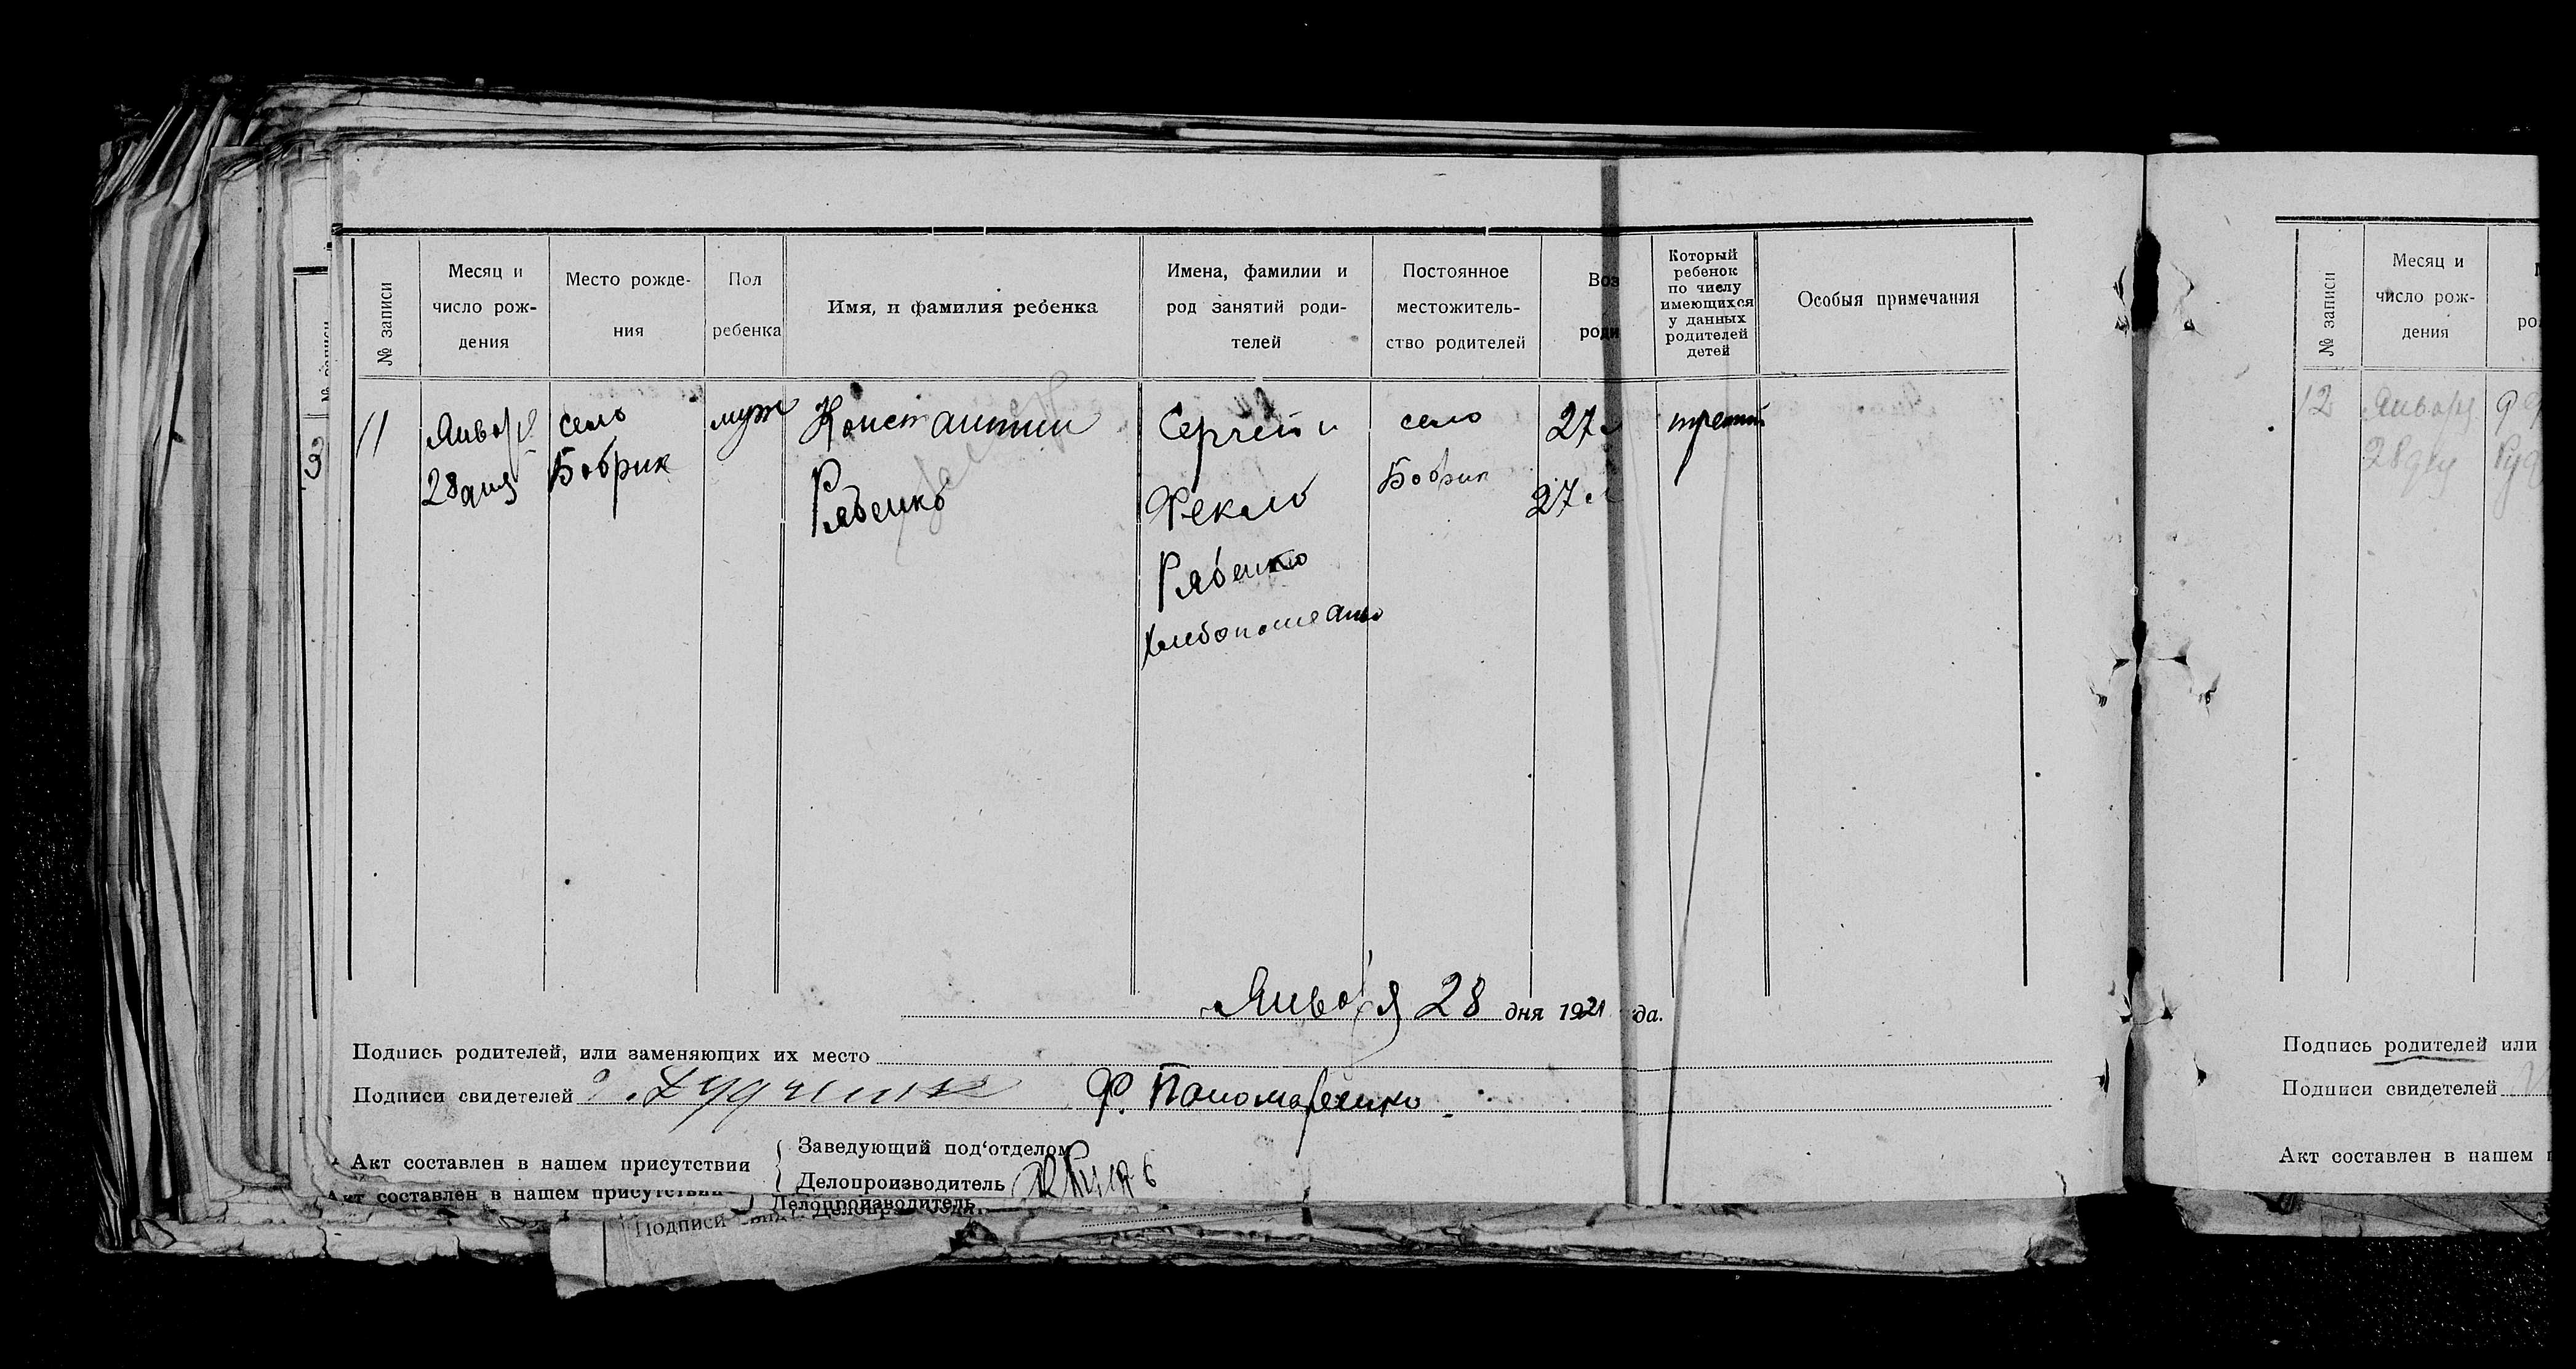 № записи
Месяц и
число рож-
дения
Место рожде-
ния
Пол
ребенка
Имя, и фамилия ребенка
Имена, фамилии и
род занятий роди-
телей
Постоянное
местожитель-
ство родителей
Воз
роди
Который
ребенок
по числу
имеющихся
у данных
родителей
детей
Особыя примечания
11
Января
28 дня
село
Бобрик
муж
Константин
Рябенко
Сергей и
Фекла
Рябенко
село
Бобрик
27 л
27 л
третий
Января 28 дня 1921 да.
Подпись родителей, или заменяющих их место
Подписи свидетелей
Ф. Пономаренко
Акт составлен в нашем присутствии
Заведующий под'отделом
Делопроизводитель
Акт составлен в нашем присутствии
Делопроизводитель
Подписи
№ записи
Месяц и
число рож-
дения
12
Января
28 дня
Подпись родителей или
Подписи свидетелей
Акт составлен в нашем